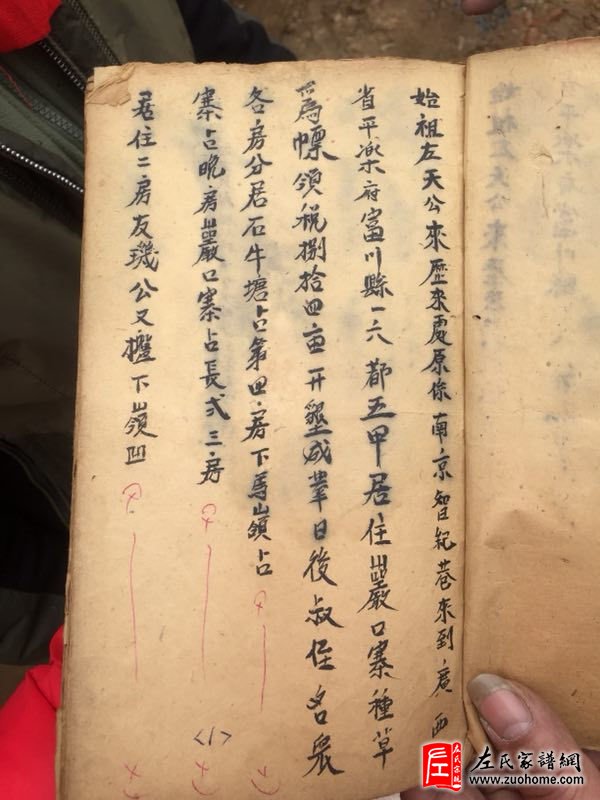 始祖左天公來歷來處原係南京智紀巷來到廣西
省平楽府富川縣一六都五甲居住巖口寨種草
為標領税捌拾四亩开墾成業日後叔侄名衆
各房分居石牛塘占第四房下馬嶺占
寨占晚房巖口寨占長弍三房
居住二房友璣公又下嶺凹
<1>
左氏家譜網
www.zuohome.com